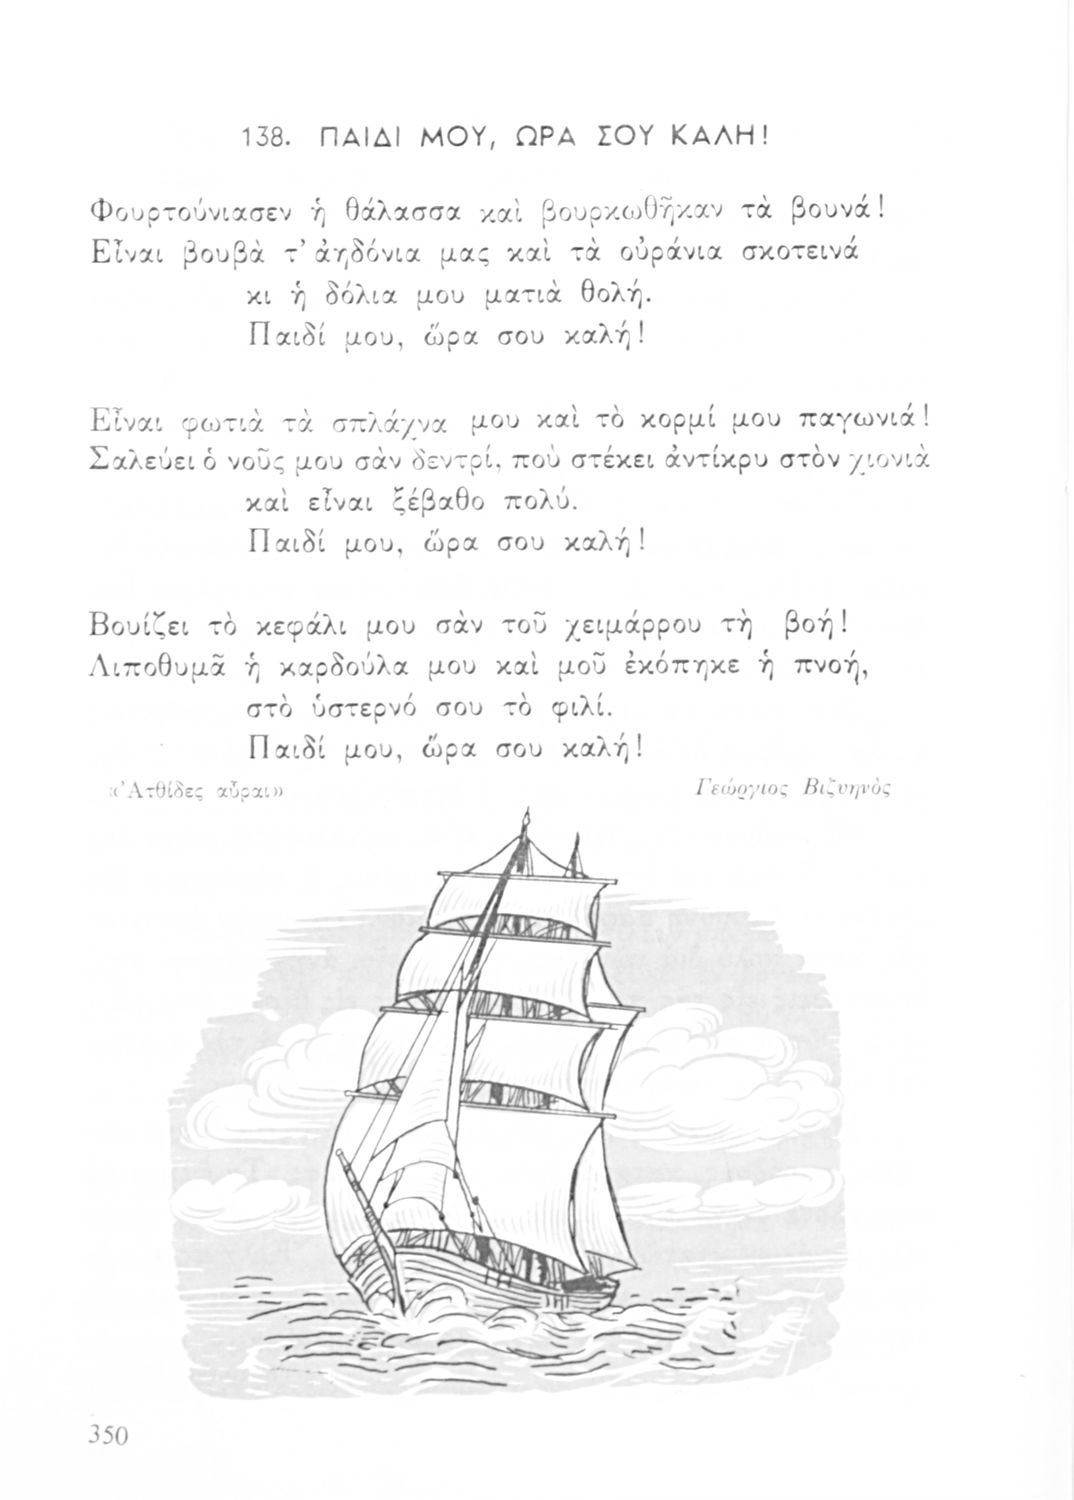 138. ΠΑΙΔΙ ΜΟΥ, ΩΡΑ ΣΟΥ ΚΑΛΗ!
Φουρτούνιασεν ἡ θάλασσα καὶ βουρκωθῆκαν τὰ βουνά!
Εἶναι βουβὰ τ’ ἀηδόνια μας καὶ τὰ οὐράνια σκοτεινά
κι ἡ δόλια μου ματιὰ θολή.
Παιδί μου, ὥρα σου καλή!
Εἶναι φωτιὰ τὰ σπλάχνα μου καὶ τὸ κορμί μου παγωνιά!
Σαλεύει ὁ νοῦς μου σὰν δεντρί, ποὺ στέκει ἀντίκρυ στὸν χιονιὰ
καὶ εἶναι ξέβαθο πολύ.
Παιδί μου, ὥρα σου καλή!
Βουίζει τὸ κεφάλι μου σὰν τοῦ χειμάρρου τὴ βοή!
Λιποθυμᾶ ἡ καρδούλα μου καὶ μοῦ ἐκόπηκε ἡ πνοή,
στὸ ὑστερνό σου τὸ φιλί.
Παιδί μου, ὥρα σου καλή!
«Ἀτθίδες αὖραι» Γεώργιος Βιζυηνὸς
350